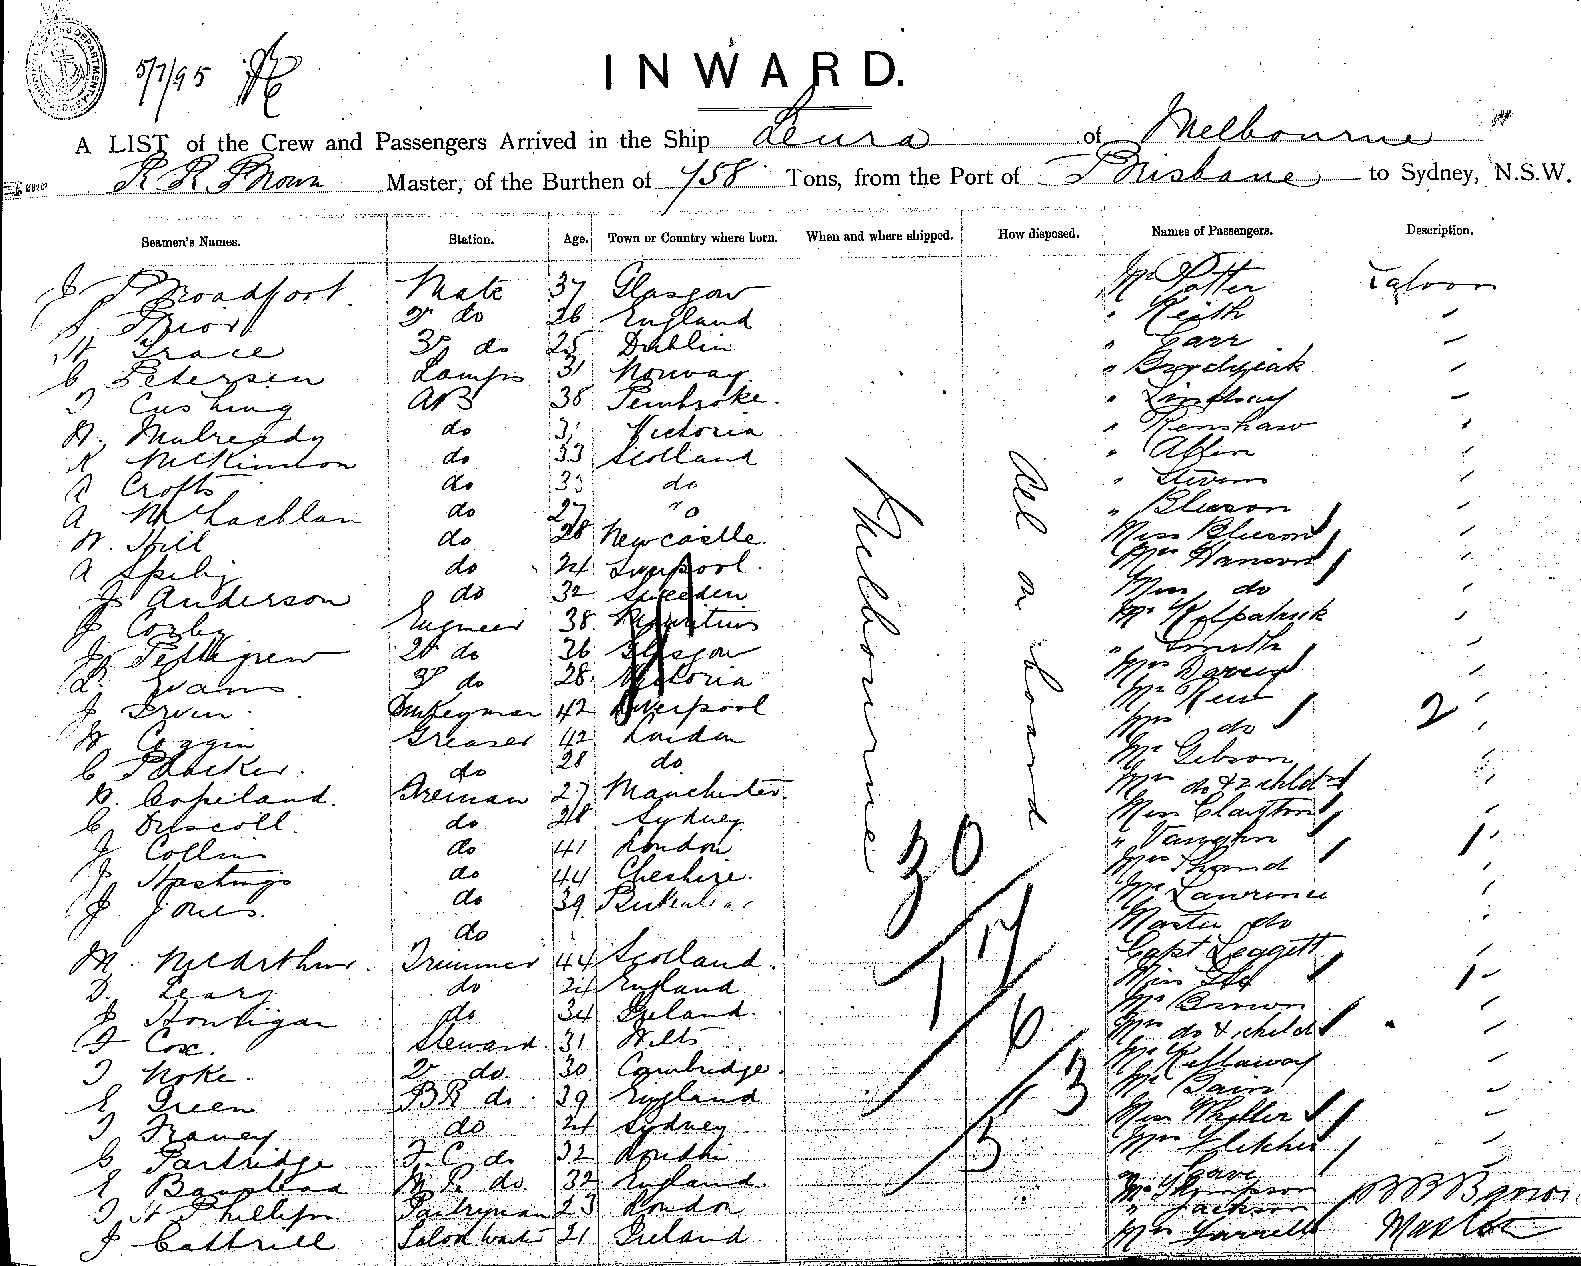 5/7/95
INWARD.
A LIST of the Crew and Passengers Arrived in the Ship Leura of Melbourne
Master, of the Burthen of 758 Tons, from the Port of Brisbane to Sydney, N.S.W.
Seamen's Names. Station. Age. Town or Country where born. When and where shipped. How disposed. Names of Passengers. Description.
J Broadfoot Mate 37 Glasgow Mr Potter Saloon
S. Prior 2d do 26 England " Keith "
H Grace 3d do 25 Dublin " Carr "
C Petersen Lamps 31 Norway "
T Cushing AB 38 Pembroke. " Lindsay "
Mulready do 31 Victoria " Renshaw "
McKinnon do 33 Scotland "
A Crofts do 33 do " Stevens "
A. McLachlan do 27 "o " Bleeson "
W. Hill do 28 Newcastle. Miss Bleeson "
A do 24 Liverpool. "
J Anderson do 32 Sweden do "
J Corby Engineer 38. Mauritius Mr Kilpatrick "
J. Pettigrew 2d do 36 Glasgow " Smith "
Evans. 3d do 28. Victoria "
J Irvin. Donkeyman 42 Liverpool Mr
W Coggin Greaser 42 London Mrs do 2 "
C do 28 do Mr Gibson "
Copeland. Fireman 27 Manchester. Mrs do & 2 childn
C Driscoll. do 28 Sydney Miss Clayton "
J Collins do 41 London " 1 "
J Hastings do 44 Cheshire. Mrs "
J Jones. do 39 Mr Lawrence "
do Master do "
M. McArthur. Trimmer 44 Scotland. Capt Leggett "
D. Leary do 24 England Miss 1 "
J Hourigan do 34 Ireland. Mr Brown "
F Cox. Steward. 31 Wilts Mrs do & child "
T Noke. 2d do. 30 Cambridge. Mr Kellaway "
E Green BR do. 39 England Mr Bain "
T Franey do 24 Sydney Miss "
C Partridge F.C. do 32 London Mrs Fletcher "
E do 32 England.
T H Phillips Pantryman 23 London Mr Thompson
J Cattrell 21 Ireland " Jackson
Mrs
Melbourne
All on board
30
17
6
13
5
Master